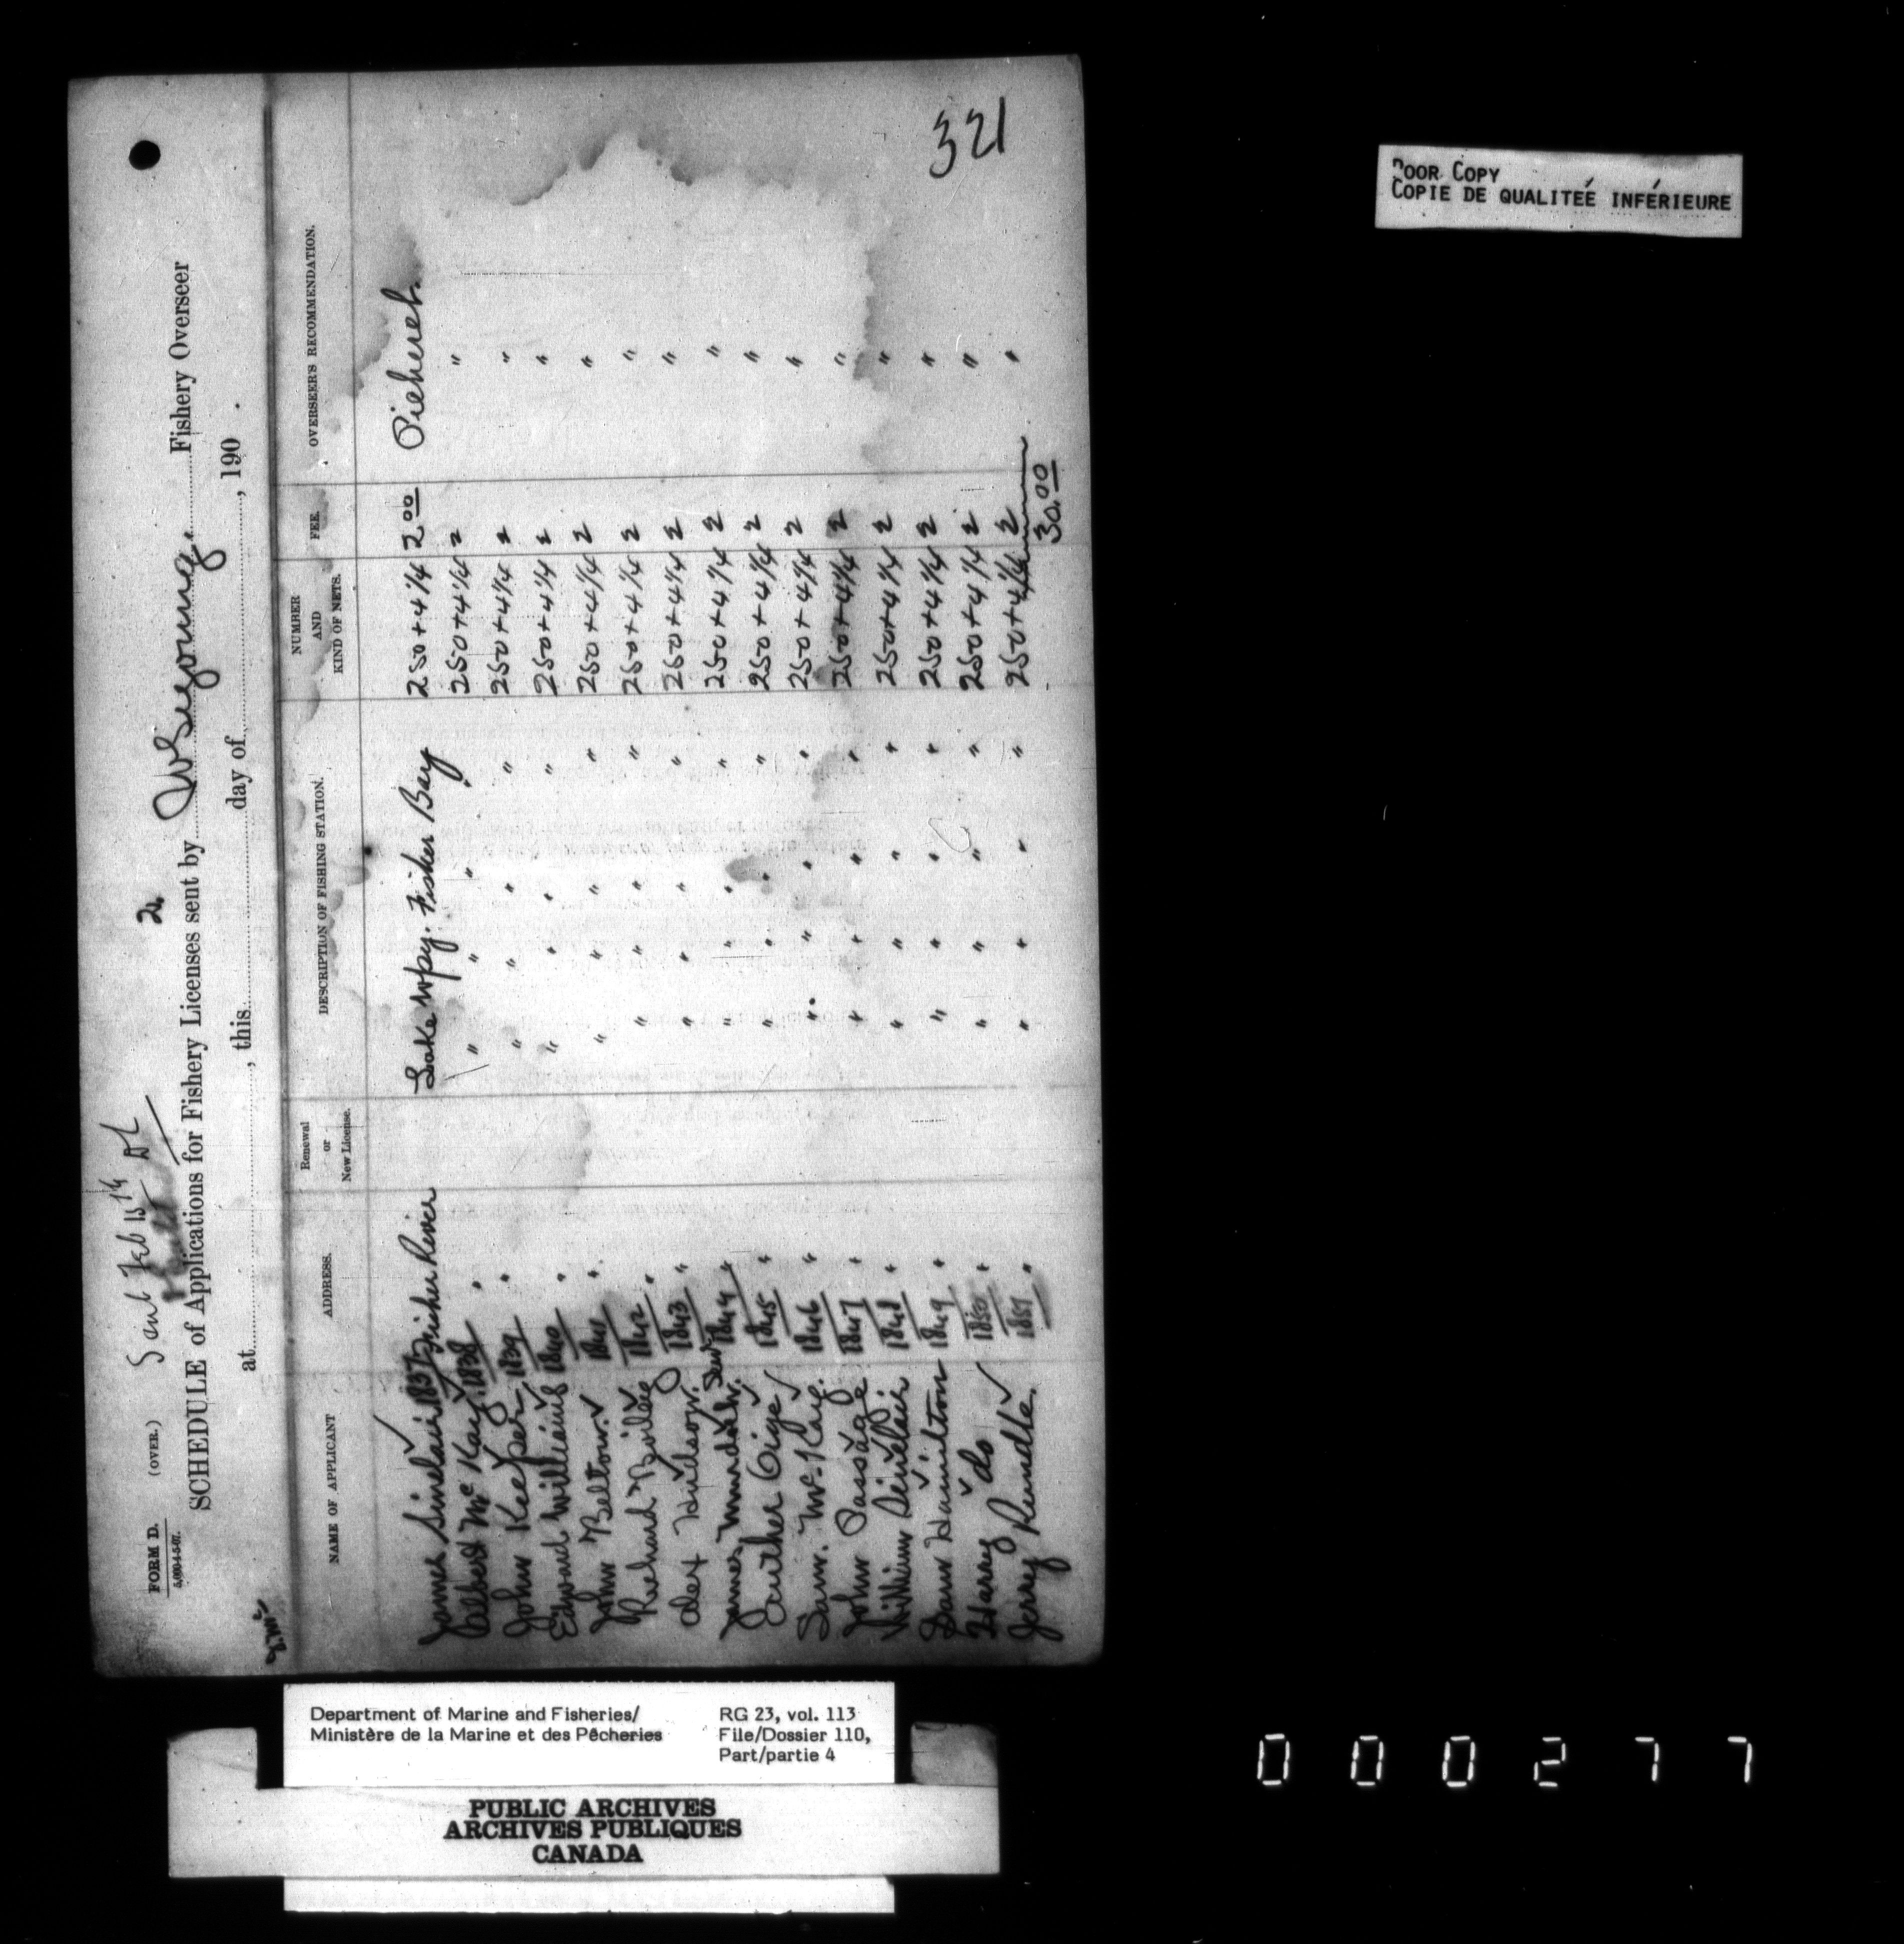 321
POOR COPY
COPIE DE QUALITEÉ INFÉRIEURE
FORM D. (OVER.) Sent Feb 15th
5,000-4-5-07.
2.
SCHEDULE of Applications for Fishery Licenses sent by Fishery Overseer
at , this day of , 190 .
NAME OF APPLICANT ADDRESS. Renewal or New License. DESCRIPTION OF FISHING STATION. NUMBER AND KIND OF NETS. FEE. OVERSEER'S RECOMMENDATION.
James Sinclair 1837 Fisher River Lake Wpg. Fisher Bay 250 + 4 1/4 2 00 Pickerel
Albert McKay 1838 " " " " " 250 + 4 1/4 2 "
John Keeper 1839 " " " " " 250 + 4 1/4 2 "
Edward Williams 1840 " " " " " 250 + 4 1/4 2 "
John Belton 1841 " " " " " 250 + 4 1/4 2 "
Richard 1842 " " " " " 250 + 4 1/4 2 "
Alex Hudson 1843 " " " " " 250 + 4 1/4 2 "
James 1844 " " " " " 250 + 4 1/4 2 "
1845 " " " " " 250 + 4 1/4 2 "
Sam. McKay. 1846 " " " " " 250 + 4 1/4 2 "
John Passage 1847 " " " " " 250 + 4 1/4 2 "
William Sinclair 1848 " " " " " 250 + 4 1/4 2 "
Sam Hamilton 1849 " " " " " 250 + 4 1/4 2 "
Harry do 1850 " " " " " 250 + 4 1/4 2 "
Jerry Rundle 1851 " " " " " 250 + 4 1/4 2 "
30.00
Department of Marine and Fisheries/
Ministère de la Marine et des Pêcheries
RG 23, vol. 113
File/Dossier 110,
Part/partie 4
PUBLIC ARCHIVES
ARCHIVES PUBLIQUES
CANADA
000277